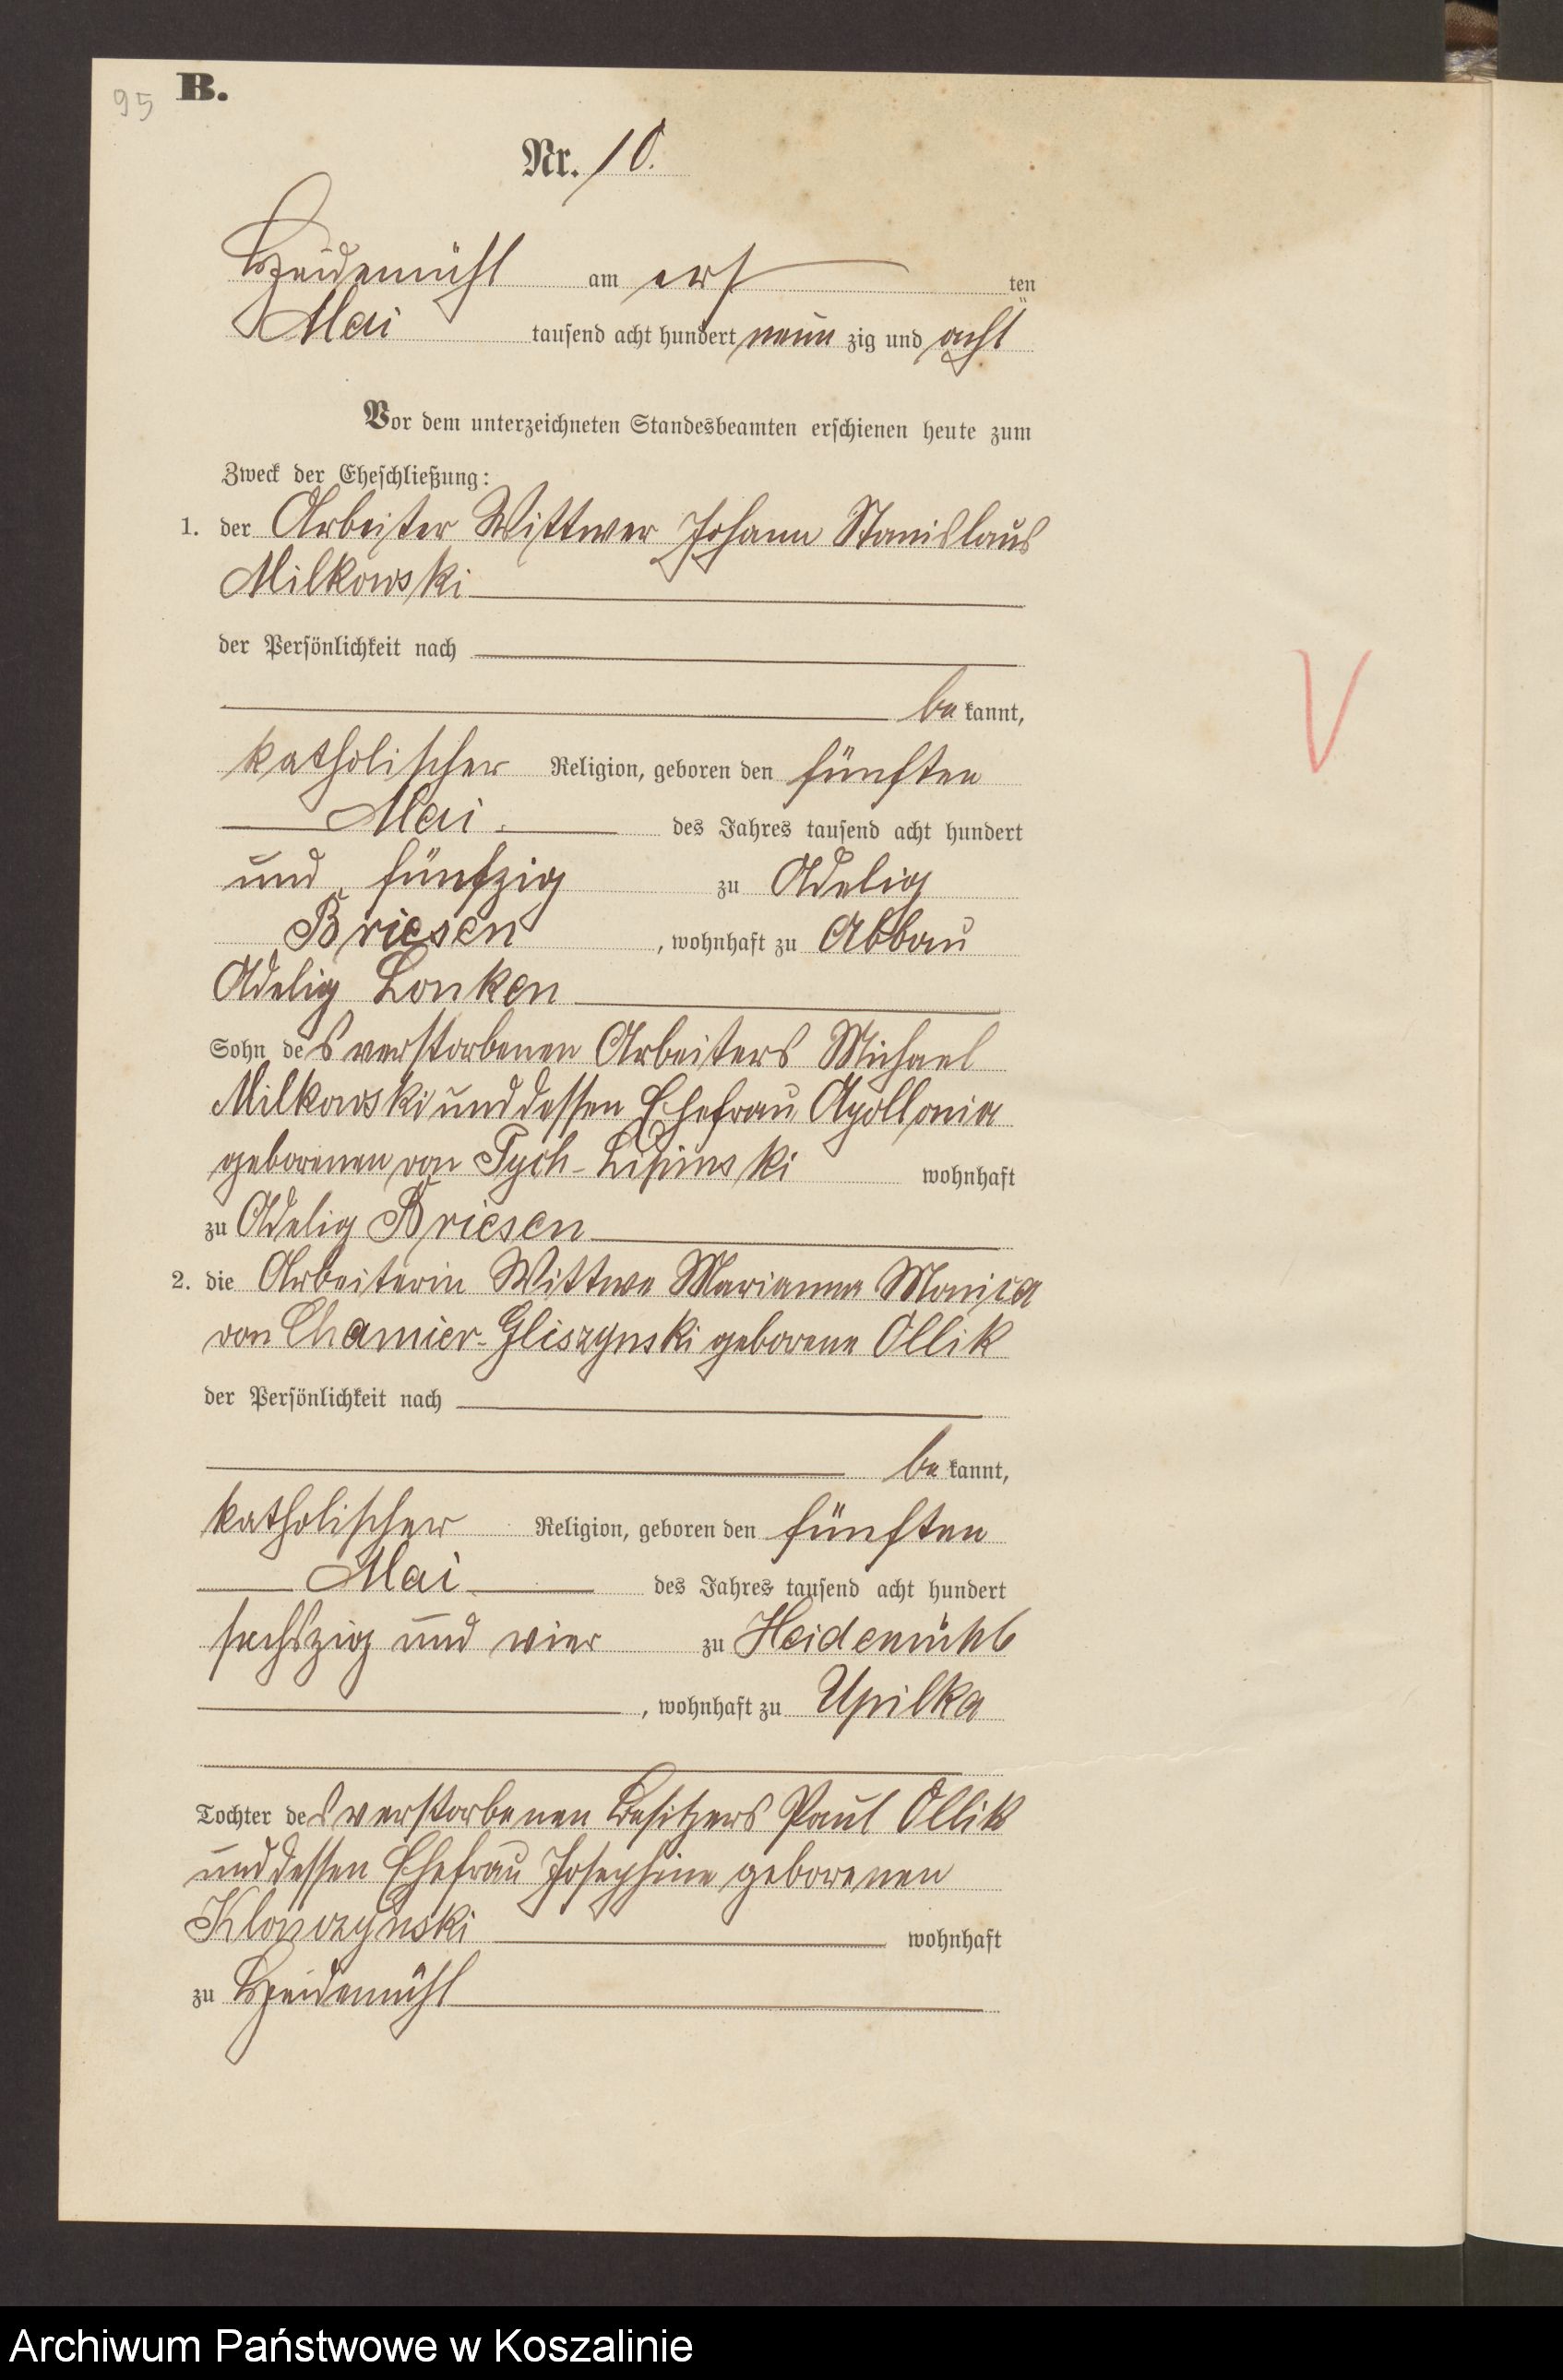 95
B.
Nr. 10.
Heidemühl am erſ ten
Mai tauſend acht hundert neun zig und acht
Vor dem unterzeichneten Standesbeamten erſchienen heute zum
Zweck der Eheſchließung:
1. der Arbeiter Wittwer Johann Stanislaus
Milkowski
der Perſönlichkeit nach
be kannt,
katholiſcher Religion, geboren den fünften
Mai des Jahres tauſend acht hundert
und fünfzig zu Adelig
Briesen, wohnhaft zu Abbau
Adelig Lonken
Sohn des verſtorbenen Arbeiters Michael
Milkowski und deſſen Ehefrau Apollonia
geborenen von Pych-Lipinski wohnhaft
zu Adelig Briesen
2. die Arbeiterin Wittwe Marianna Monica
von Chamier-Gliszynski geborene Ollik
der Perſönlichkeit nach
be kannt,
katholiſcher Religion, geboren den fünften
Mai des Jahres tauſend acht hundert
ſechszig und vier zu Heidemühl
, wohnhaft zu Upilka
Tochter des verſtorbenen Beſitzers Paul Ollik
und deſſen Ehefrau Joſephine geborenen
Klonczynski wohnhaft
zu Heidemühl
V
Archiwum Państwowe w Koszalinie